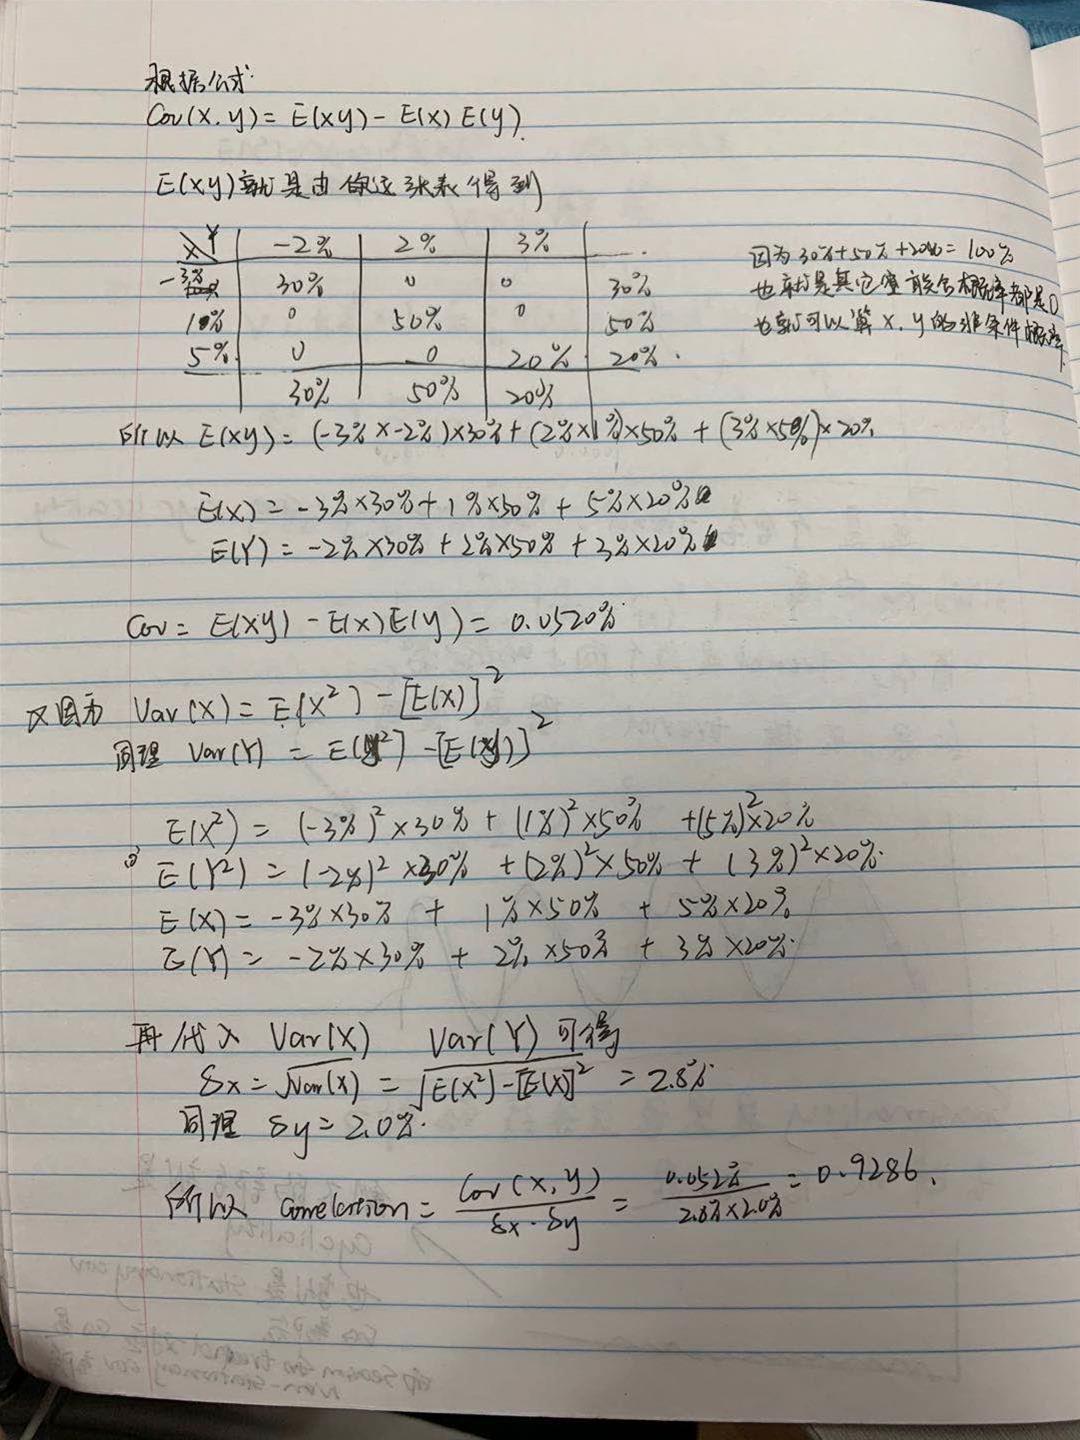 根据公式:
Cov(x,y) = E(xy) - E(x) E(y).
E(xy)就是由你这张表得到
X Y -2% 2% 3%
-3% 30% 0 0 30%
1% 0 50% 0 50%
5% 0 0 20% 20%
30% 50% 20%
因为 30%+50%+20% = 100%
也就是其它可能会概率都是0
也就可以算 x, y 的非条件概率
所以 E(xy) = (-3% × -2%)×30% + (2%×1%)×50% + (3%×5%)×20%
E(X) = -3%×30% + 1%×50% + 5%×20%
E(Y) = -2%×30% + 2%×50% + 3%×20%
Cov = E(xy) - E(x)E(y) = 0.0520%
又因为 Var(X) = E(X²) - [E(X)]²
同理 Var(Y) = E(y²) - [E(y)]²
E(X²) = (-3%)²×30% + (1%)²×50% + (5%)²×20%
E(Y²) = (-2%)²×30% + (2%)²×50% + (3%)²×20%.
E(X) = -3%×30% + 1%×50% + 5%×20%
E(Y) = -2%×30% + 2%×50% + 3%×20%.
再代入 Var(X) Var(Y) 可得
δx = √Var(x) = √E(X²)-[E(X)]² = 2.8%
同理 δy = 2.0%.
所以 Correlation = Cov(x,y) / δx·δy = 0.052% / 2.8%×2.0% = 0.9286.